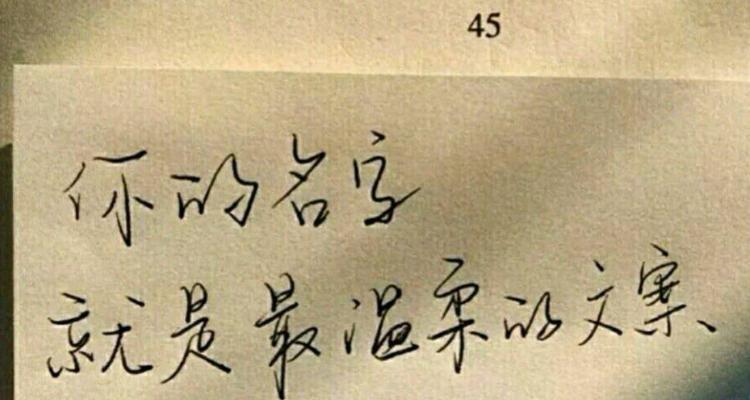 45
你的名字
就是最温柔的文案、